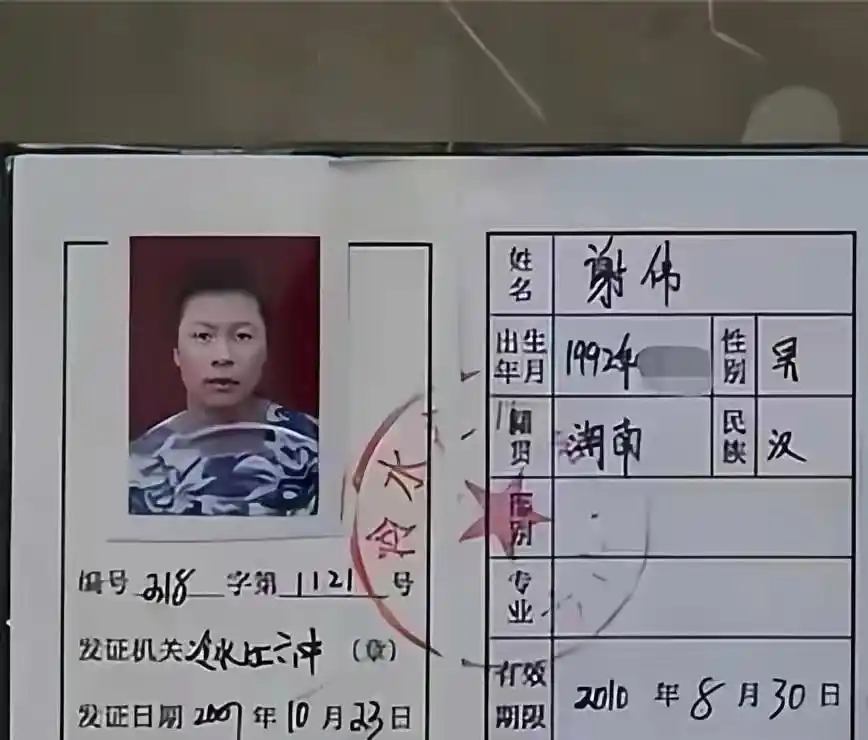 编号 218 字第 1121 号
发证机关 冷水江六中 (章)
发证日期 2007 年 10 月 23 日
冷水
姓名 谢伟
出生年月 1992年 性别 男
籍贯 湖南 民族 汉
别
专业
有效期限 2010 年 8 月 30 日